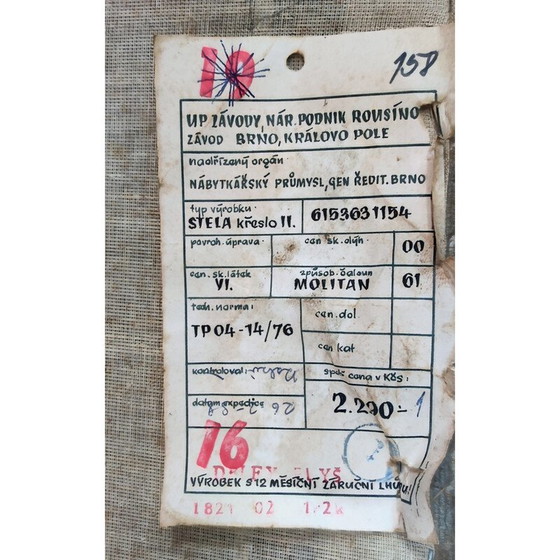 10 158
UP ZÁVODY, NÁR. PODNIK ROUSÍNO
ZÁVOD BRNO, KRÁLOVO POLE
nadřízený orgán
NÁBYTKÁŘSKÝ PRŮMYSL, GEN ŘEDIT. BRNO
typ výrobku
STELA křeslo II. 6153631154
povrch. úprava cen sk. olyn. 00
cen. sk. látek způsob čaloun
VI. MOLITAN 61
tech. norma: cen. dol
TP 04-14/76
cen kat
kontroloval: spec cena v Kčs:
datum expedice 26 2.290-
16
VÝROBEK S 12 MĚSÍČNÍ ZÁRUČNÍ LHŮ
02